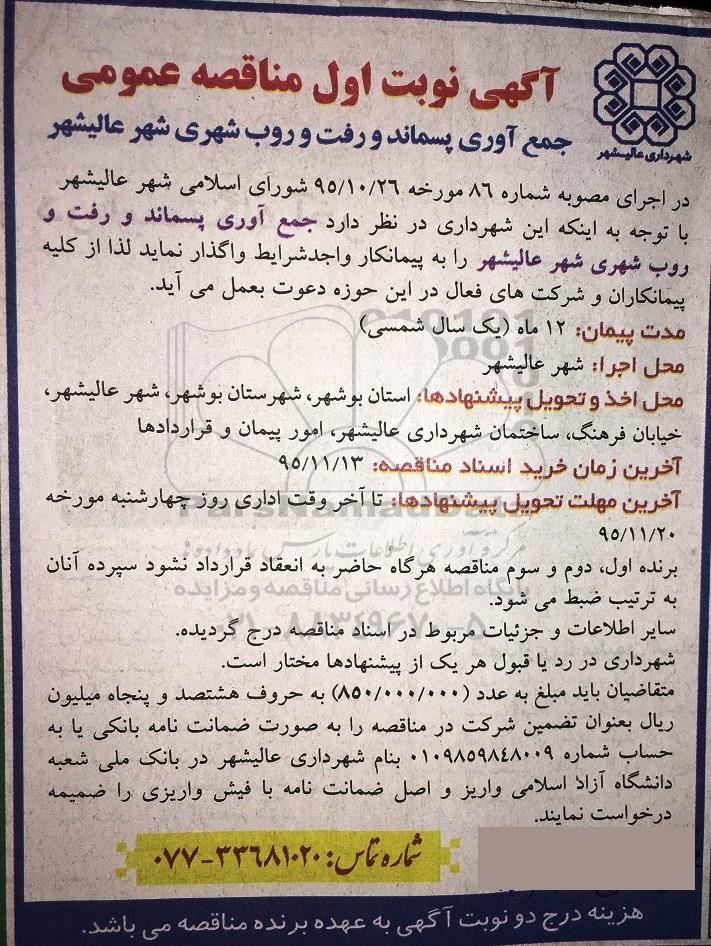 آگهی نوبت اول مناقصه عمومی
جمع آوری پسماند و رفت و روب شهری شهر عالیشهر
شهرداری عالیشهر
در اجرای مصوبه شماره ۸۶ مورخه ۹۵/۱۰/۲۶ شورای اسلامی شهر عالیشهر
با توجه به اینکه این شهرداری در نظر دارد جمع آوری پسماند و رفت و
روب شهری شهر عالیشهر را به پیمانکار واجدشرایط واگذار نماید لذا از کلیه
پیمانکاران و شرکت های فعال در این حوزه دعوت بعمل می آید.
مدت پیمان: ۱۲ ماه (یک سال شمسی)
محل اجرا: شهر عالیشهر
محل اخذ و تحویل پیشنهادها: استان بوشهر، شهرستان بوشهر، شهر عالیشهر،
خیابان فرهنگ، ساختمان شهرداری عالیشهر، امور پیمان و قراردادها
آخرین زمان خرید اسناد مناقصه: ۹۵/۱۱/۱۳
آخرین مهلت تحویل پیشنهادها: تا آخر وقت اداری روز چهارشنبه مورخه
۹۵/۱۱/۲۰
برنده اول، دوم و سوم مناقصه هرگاه حاضر به انعقاد قرارداد نشود سپرده آنان
به ترتیب ضبط می شود.
سایر اطلاعات و جزئیات مربوط در اسناد مناقصه درج گردیده.
شهرداری در رد یا قبول هر یک از پیشنهادها مختار است.
متقاضیان باید مبلغ به عدد (۸۵۰/۰۰۰/۰۰۰) به حروف هشتصد و پنجاه میلیون
ریال بعنوان تضمین شرکت در مناقصه را به صورت ضمانت نامه بانکی یا به
حساب شماره ۰۱۰۹۸۵۹۸۴۸۰۰۹ بنام شهرداری عالیشهر در بانک ملی شعبه
دانشگاه آزاد اسلامی واریز و اصل ضمانت نامه با فیش واریزی را ضمیمه
درخواست نمایند.
شماره تماس: ۳۳۶۸۱۰۲۰-۰۷۷
هزینه درج دو نوبت آگهی به عهده برنده مناقصه می باشد.